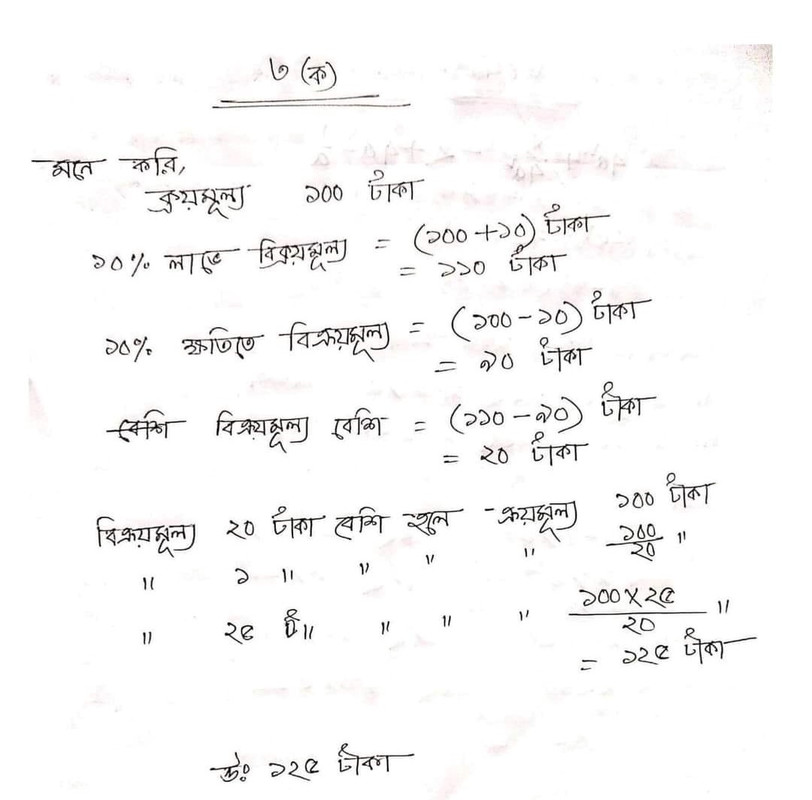 ৩ (ক)
মনে করি,
ক্রয়মূল্য ১০০ টাকা
১০% লাভে বিক্রয়মূল্য = (১০০ + ১০) টাকা
= ১১০ টাকা
১০% ক্ষতিতে বিক্রয়মূল্য = (১০০ - ১০) টাকা
= ৯০ টাকা
বেশি বিক্রয়মূল্য বেশি = (১১০ - ৯০) টাকা
= ২০ টাকা
বিক্রয়মূল্য ২০ টাকা বেশি হলে ক্রয়মূল্য ১০০ টাকা
" ১ " " " " ১০০/২০ "
" ২৫ " " " " ১০০ X ২৫/২০ "
= ১২৫ টাকা
উঃ ১২৫ টাকা